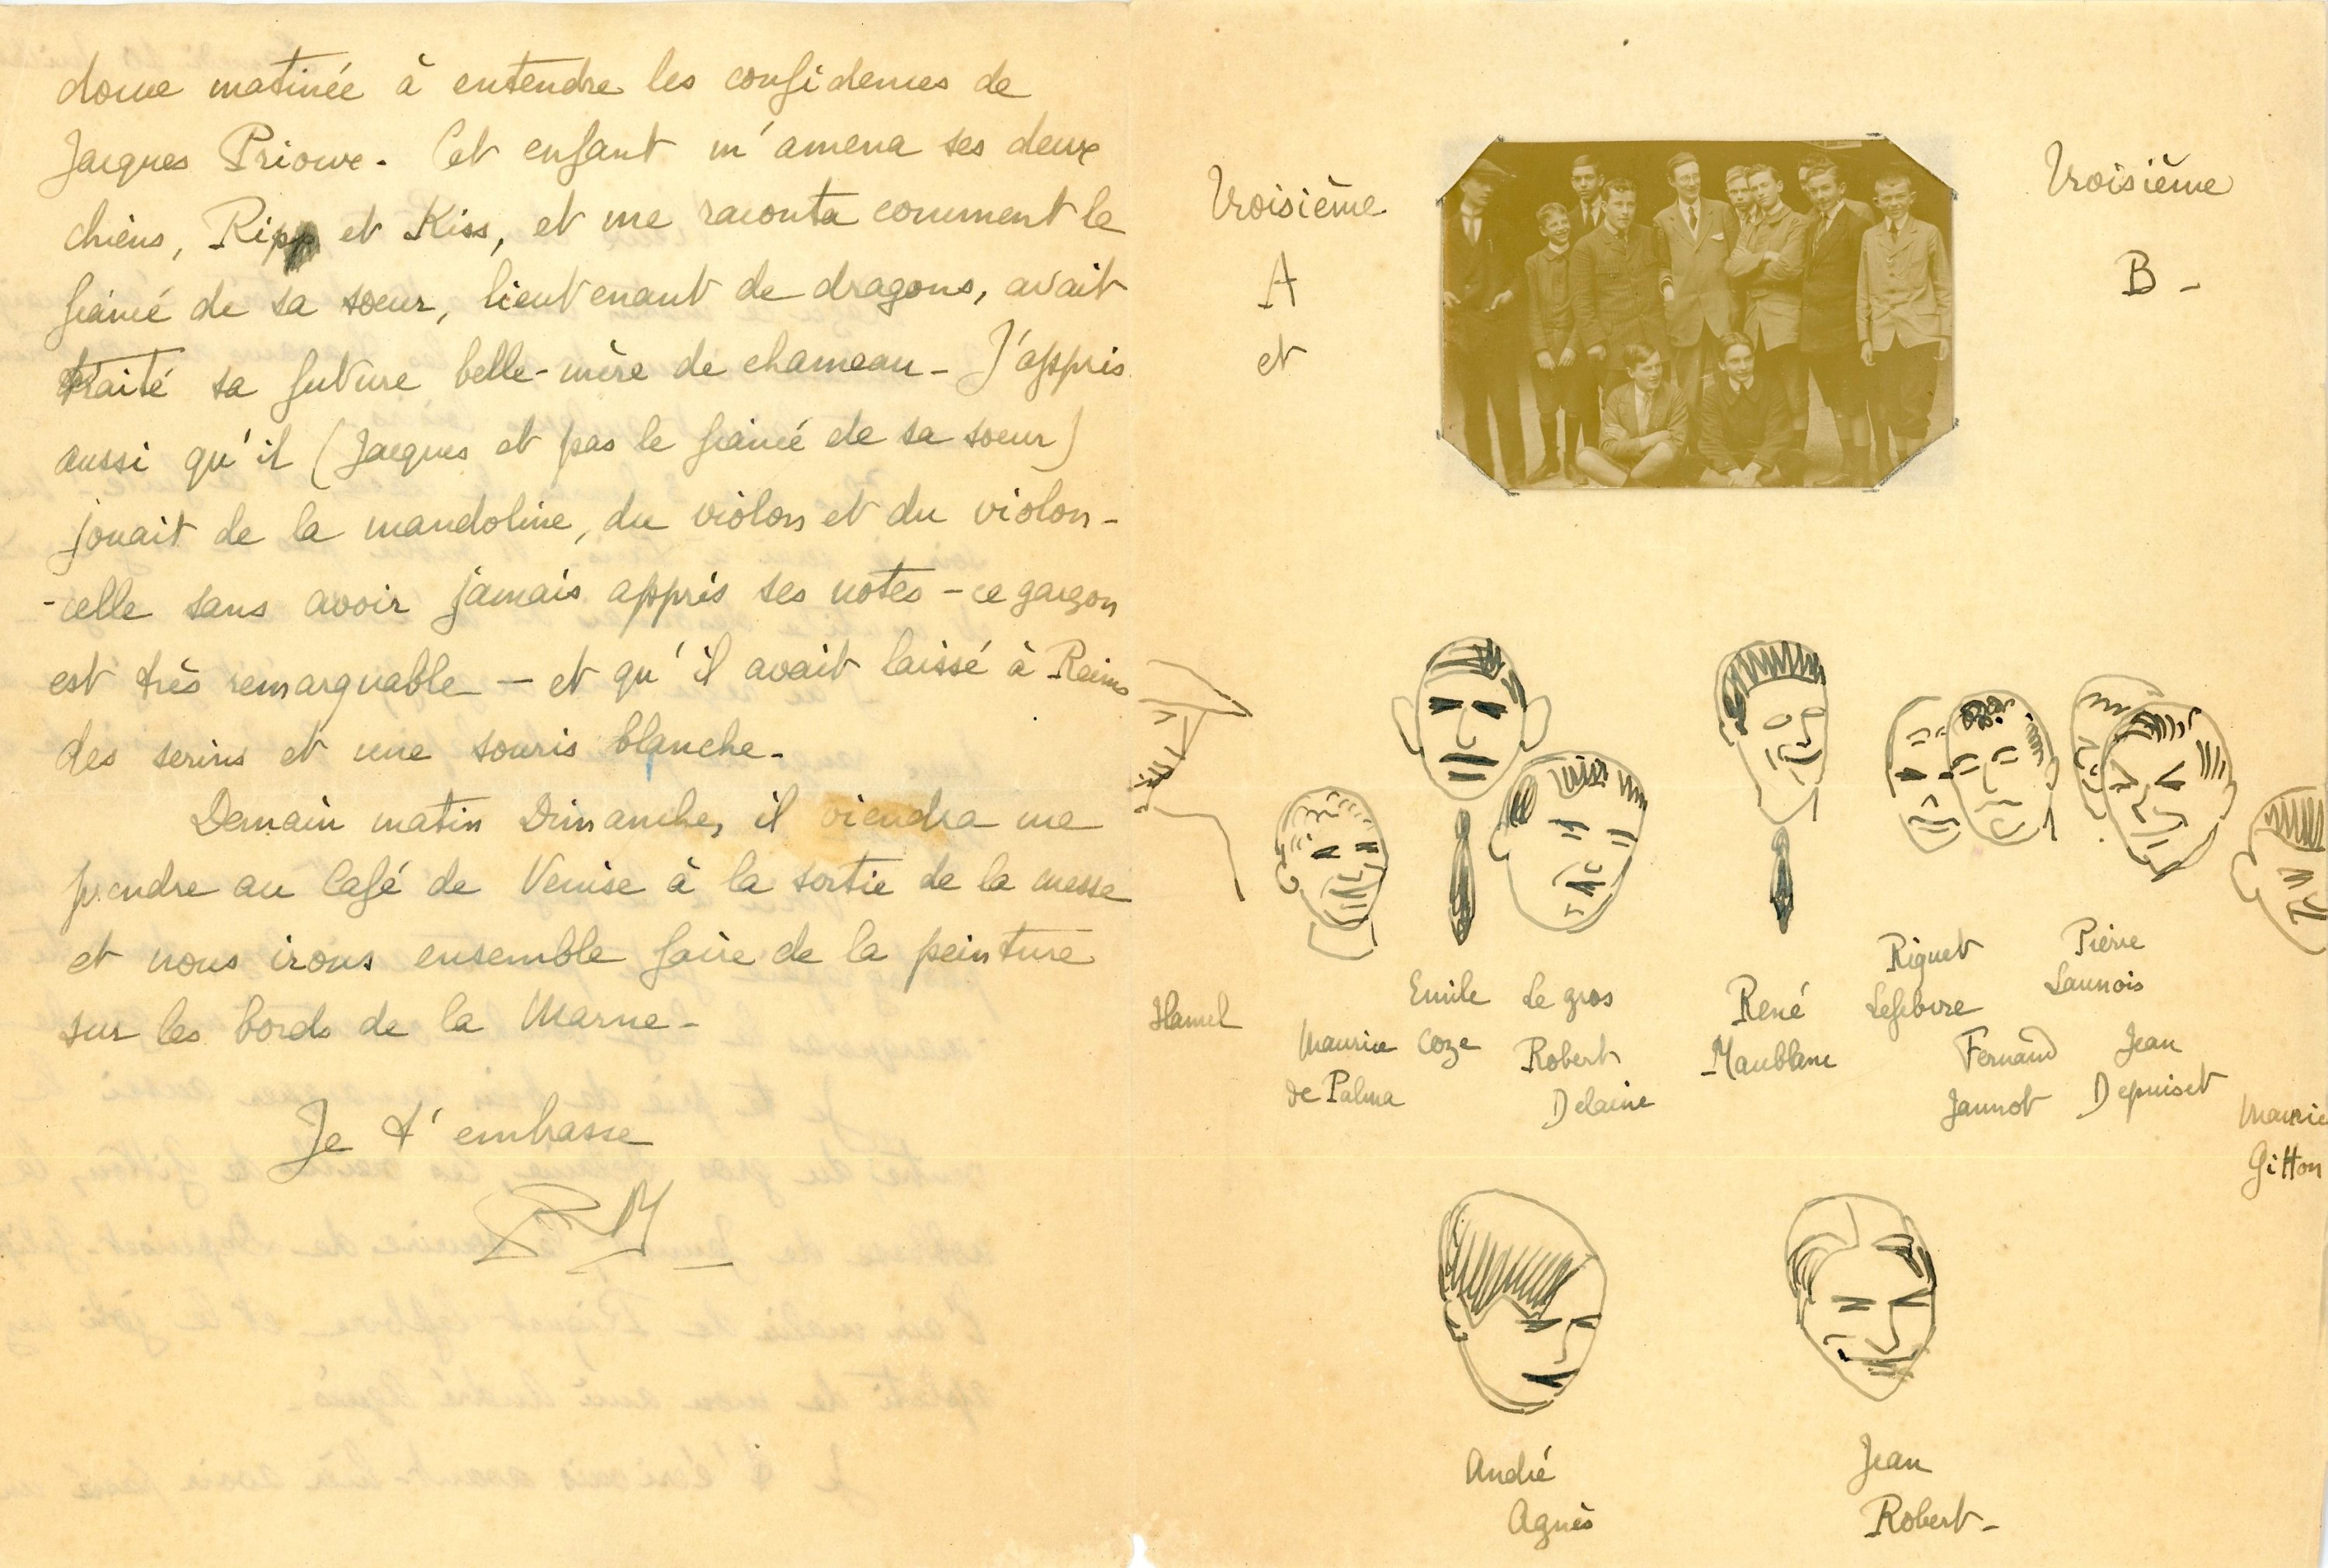 douce matinée à entendre les confidences de
Jacques Priouve. Cet enfant m'amena ses deux
chiens, Ripp et Kiss, et me raconta comment le
fiancé de sa soeur, lieutenant de dragons, avait
traité sa future belle-mère de chameau - J'appris
aussi qu'il (Jacques et pas le fiancé de sa soeur)
jouait de la mandoline, du violon et du violon-
-celle sans avoir jamais appris ses notes - ce garçon
est très remarquable - et qu'il avait laissé à Reims
des serins et une souris blanche.
Demain matin Dimanche, il viendra me
prendre au Café de Venise à la sortie de la messe
et nous irons ensemble faire de la peinture
sur les bords de la Marne -
Je t'embrasse
RM
Troisième
A
et
Troisième
B -
Hamel
Maurice
de Palma
Emile
Coze
Le gros
Robert
Delaine
René
Maublanc
Riquet
Lefebvre
Fernand
Jannot
Pierre
Launois
Jean
Depuiset
Mauric
Gitton
André
Agnès
Jean
Robert -